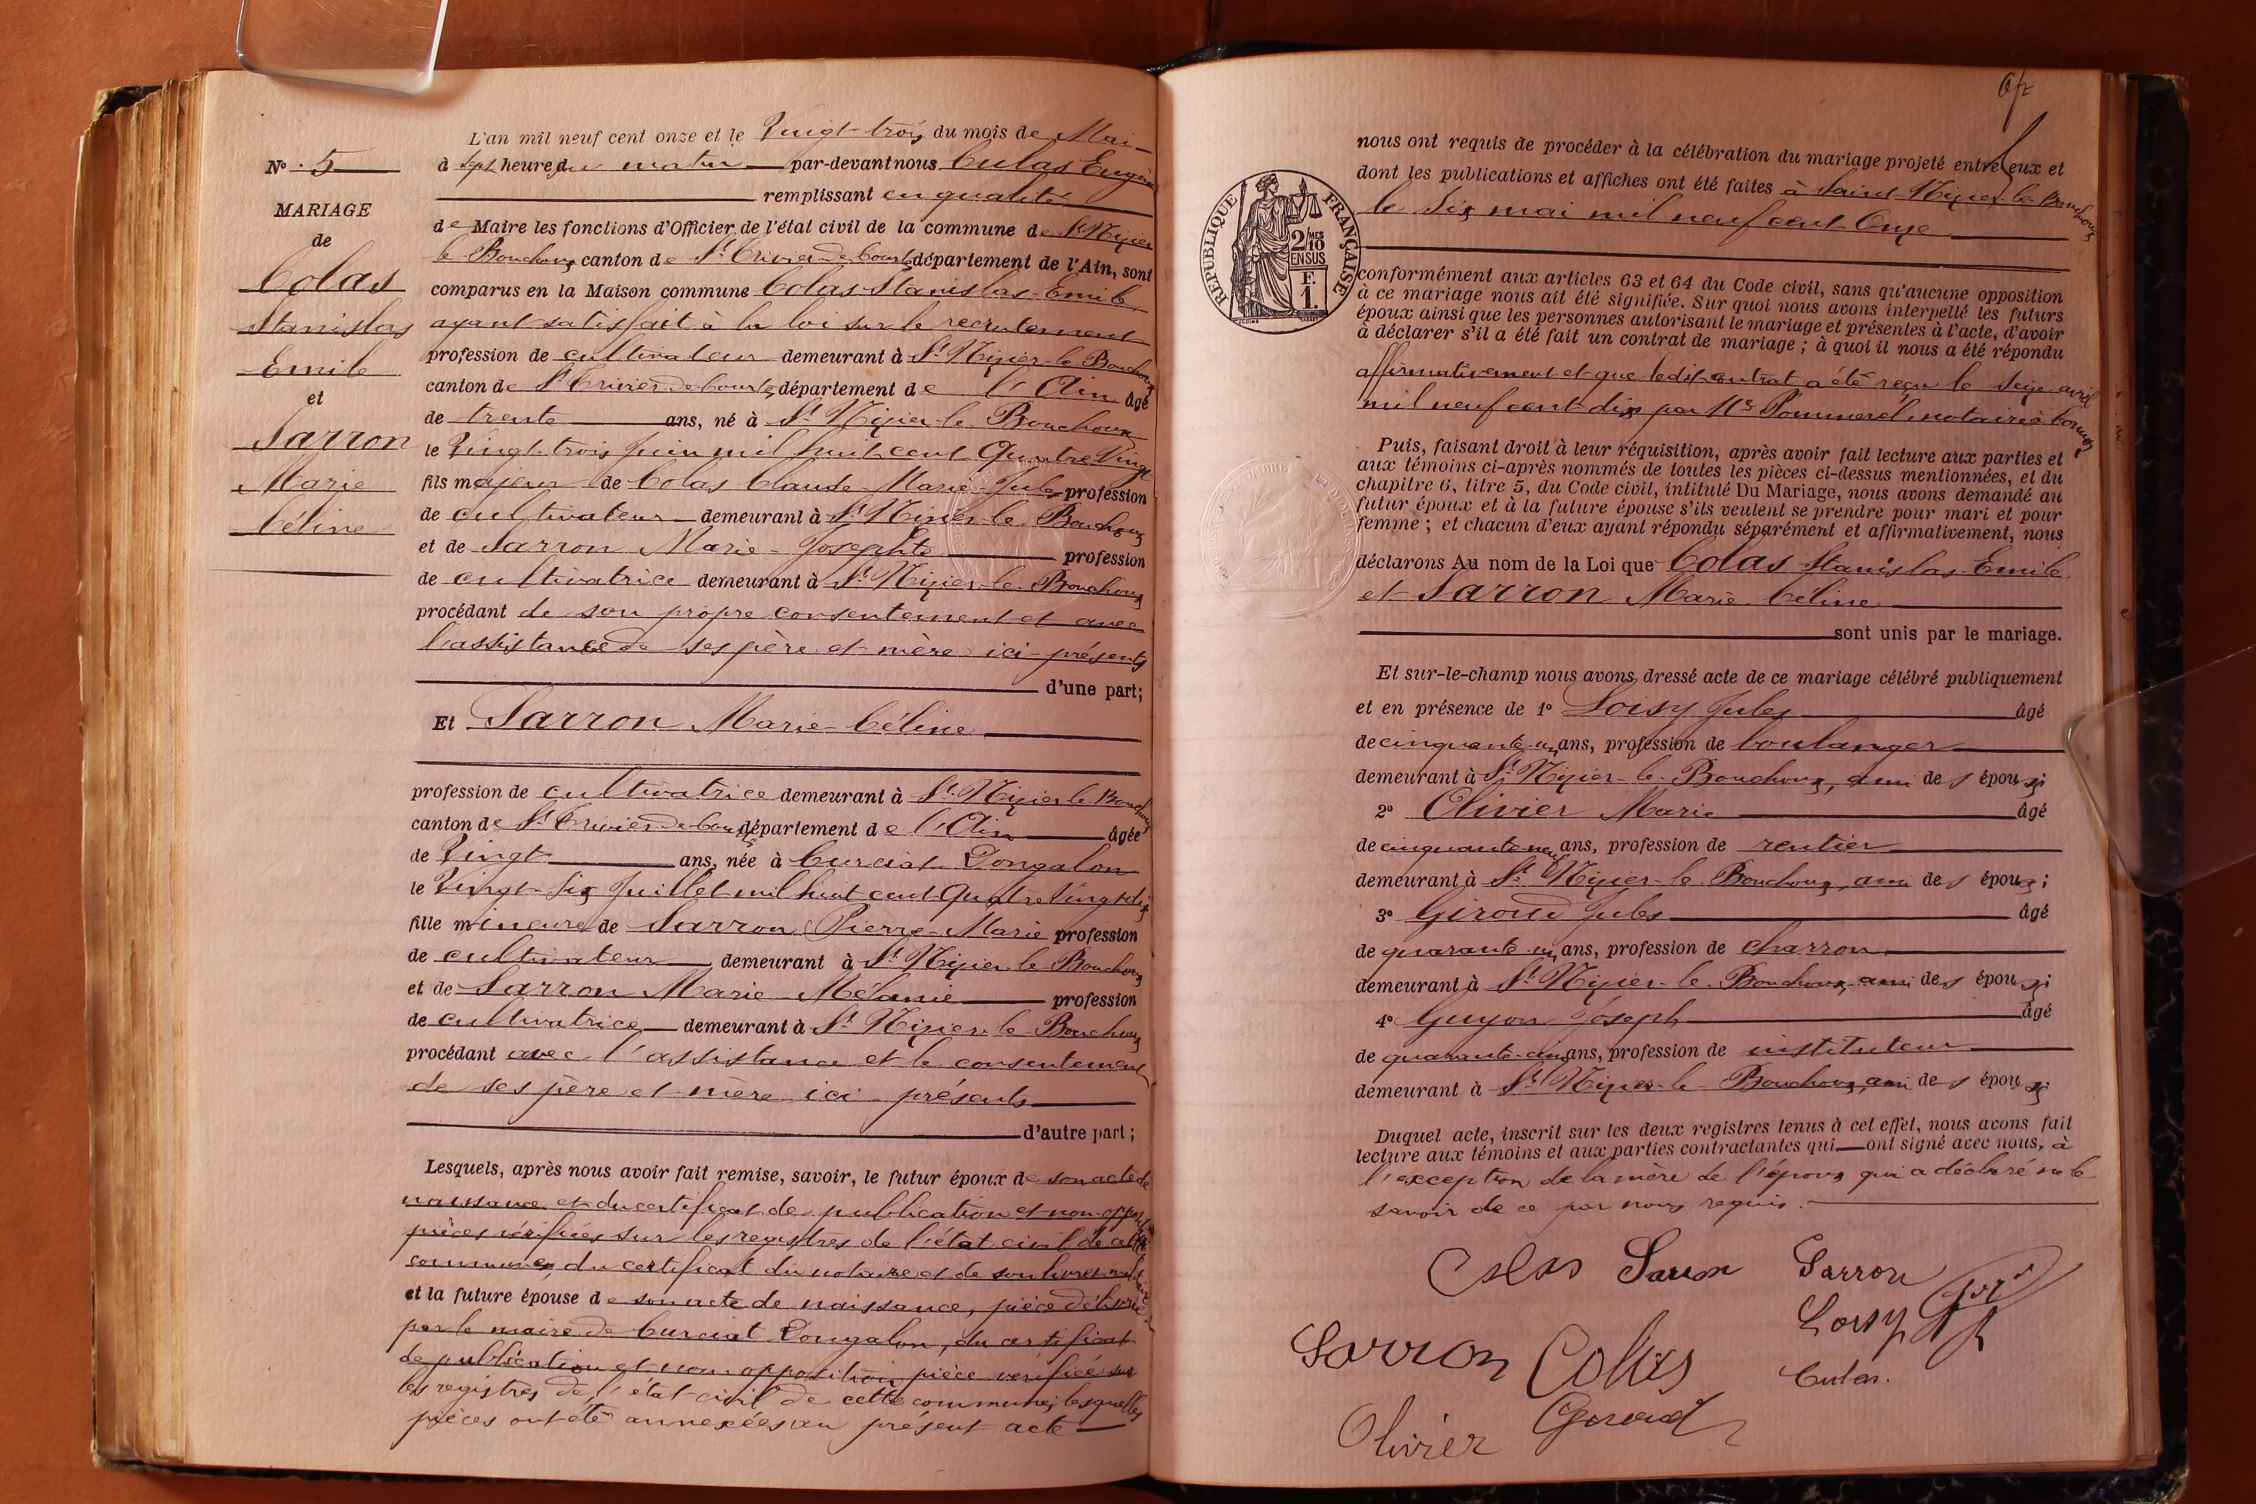 N° 5
MARIAGE
de
Colas
Stanislas
Emile
et
Sarron
Marie
Céline
L'an mil neuf cent onze et le Vingt-trois du mois de Mai
à sept heures du matin par-devant nous Culas Eugène
remplissant en qualité
de Maire les fonctions d'Officier de l'état civil de la commune de St Nizier
le Bouchoux canton de St Trivier de Courtes département de l'Ain, sont
comparus en la Maison commune Colas Stanislas Emile
ayant satisfait à la loi sur le recrutement
profession de cultivateur demeurant à St Nizier-le-Bouchoux
canton de St Trivier de Courtes département de l'Ain âgé
de trente ans, né à St Nizier-le-Bouchoux
le Vingt-trois Juin mil huit cent Quatre Vingt
fils majeur de Colas Claude Marie Jules profession
de cultivateur demeurant à St Nizier-le-Bouchoux
et de Sarron Marie-Josephte profession
de cultivatrice demeurant à St Nizier-le-Bouchoux
procédant de son propre consentement et avec
l'assistance de ses père et mère ici présents
d'une part;
Et Sarron Marie-Céline
profession de cultivatrice demeurant à St Nizier le Bouchoux
canton de St Trivier de Courtes département de l'Ain âgée
de Vingt ans, née à Curciat Dongalon
le Vingt-Six Juillet mil huit cent Quatre Vingt-dix
fille mineure de Sarron Pierre-Marie profession
de cultivateur demeurant à St Nizier le Bouchoux
et de Sarron Marie Mélanie profession
de cultivatrice demeurant à St Nizier-le-Bouchoux
procédant avec l'assistance et le consentement
de ses père et mère ici présents
d'autre part;
Lesquels, après nous avoir fait remise, savoir, le futur époux de son acte de
naissance et du certificat de publication et non opposition
pièces vérifiées sur les registres de l'état civil de cette
commune, du certificat du notaire et de son livret militaire
et la future épouse de son acte de naissance, pièce délivrée
par le maire de Curciat Dongalon, du certificat
de publication et non opposition pièce vérifiée sur
les registres de l'état civil de cette commune; lesquelles
pièces ont été annexées au présent acte
nous ont requis de procéder à la célébration du mariage projeté entre eux et
dont les publications et affiches ont été faites à Saint-Nizier-le-Bouchoux
le Six mai mil neuf cent Onze
RÉPUBLIQUE FRANÇAISE
2/10 MES
EN SUS
F.
1.
conformément aux articles 63 et 64 du Code civil, sans qu'aucune opposition
à ce mariage nous ait été signifiée. Sur quoi nous avons interpellé les futurs
époux ainsi que les personnes autorisant le mariage et présentes à l'acte, d'avoir
à déclarer s'il a été fait un contrat de mariage; à quoi il nous a été répondu
affirmativement et que ledit contrat a été reçu le Seize avril
mil neuf cent dix par Me Pommerel notaire à Cormoz
Puis, faisant droit à leur réquisition, après avoir fait lecture aux parties et
aux témoins ci-après nommés de toutes les pièces ci-dessus mentionnées, et du
chapitre 6, titre 5, du Code civil, intitulé Du Mariage, nous avons demandé au
futur époux et à la future épouse s'ils veulent se prendre pour mari et pour
femme; et chacun d'eux ayant répondu séparément et affirmativement, nous
déclarons Au nom de la Loi que Colas Stanislas Emile
et Sarron Marie Céline
sont unis par le mariage.
Et sur-le-champ nous avons dressé acte de ce mariage célébré publiquement
et en présence de 1° Loisy Jules âgé
de cinquante-un ans, profession de boulanger
demeurant à St Nizier-le-Bouchoux, ami des époux;
2° Olivier Marie âgé
de cinquante neuf ans, profession de rentier
demeurant à St Nizier-le-Bouchoux, ami des époux;
3° Giroud Jules âgé
de quarante-un ans, profession de charron
demeurant à St Nizier-le-Bouchoux, ami des époux;
4° Guyon Joseph âgé
de quarante-cinq ans, profession de instituteur
demeurant à St Nizier-le-Bouchoux, ami des époux;
Duquel acte, inscrit sur les deux registres tenus à cet effet, nous avons fait
lecture aux témoins et aux parties contractantes qui ont signé avec nous, à
l'exception de la mère de l'époux qui a déclaré ne le
savoir de ce par nous requis.
Colas Sarron Sarron
Loisy
Sarron Colas
Culas.
Olivier Giroud